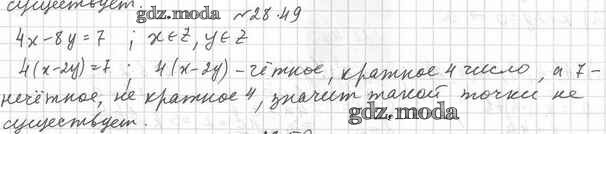 существует.
gdz.moda №28.49
4x-8y=7 ; x∈Z, y∈Z
4(x-2y)=7 ; 4(x-2y) - чётное, кратное 4 число, а 7 -
нечётное, не кратное 4, значит такой точки не
существует.
gdz.moda